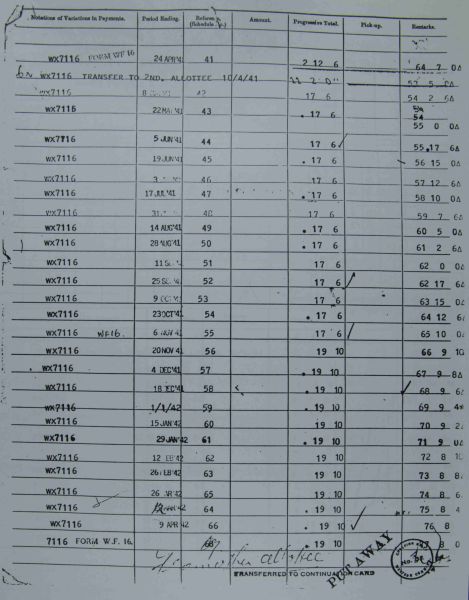 Notations of Variations in Payments. Period Ending. Reference (Schedule No.) Amount. Progressive Total. Pick-up. Remarks.
WX7116 FORM WF 16 24 APR'41 41 2 12 6 64 7 0Δ
WX7116 TRANSFER TO 2ND. ALLOTTEE 10/4/41
WX7116 42 17 6 54 2 6Δ
WX7116 22 MAY'41 43 17 6 54 54
55 0 0Δ
WX7116 5 JUN'41 44 17 6 55.17 6Δ
WX7116 19 JUN'41 45 17 6 56 15 0Δ
WX7116 46 17 6 57 12 6Δ
WX7116 17 JUL'41 47 17 6 58 10 0Δ
WX7116 31 48 17 6 59 7 6Δ
WX7116 14 AUG'41 49 17 6 60 5 0Δ
WX7116 28 AUG'41 50 17 6 61 2 6Δ
WX7116 11 SE 51 17 6 62 0 0Δ
WX7116 25 SE 52 17 6 62 17 6Δ
WX7116 9 OCT 53 17 6 63 15 0Δ
WX7116 23 OCT'41 54 17 6 64 12 6
WX7116 WF16. 6 NOV'41 55 17 6 65 10 0
WX7116 20 NOV'41 56 19 10 66 9 10
WX7116 4 DEC'41 57 19 10 67 9 8Δ
WX7116 18 DEC'41 58 19 10 68 9 6
WX7116 1/1/42 59 19 10 69 9 4
WX7116 15 JAN'42 60 19 10 70 9 2
WX7116 29 JAN'42 61 19 10 71 9 0
WX7116 12 FEB'42 62 19 10 72 8 10
WX7116 26 FEB'42 63 19 10 73 8 8
WX7116 26 MAR'42 65 19 10 74 8 6
WX7116 12 MAR'42 64 19 10 75 8 4
WX7116 9 APR'42 66 19 10 76 8
7116 FORM W.F. 16. 8 0
allottee
TRANSFERRED TO CONTINUATION CARD
PUT AWAY